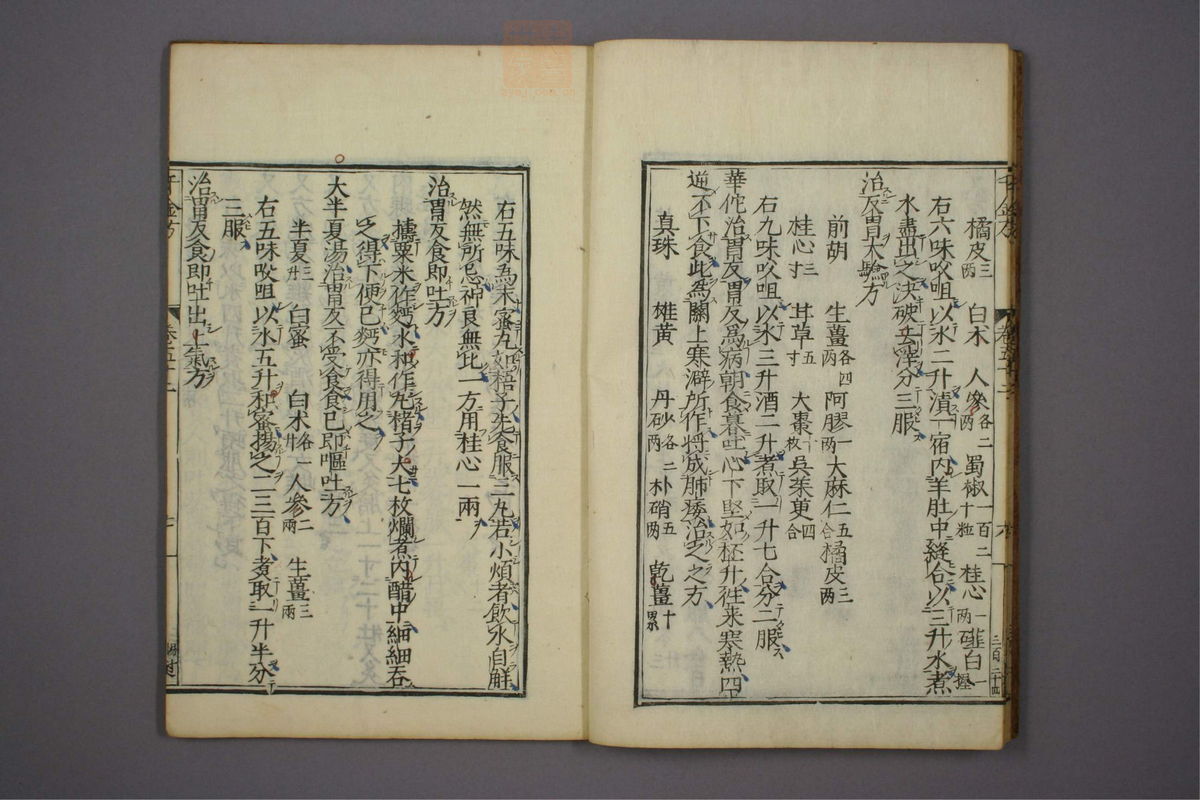 橘皮三兩 白朮 人參各二兩 蜀椒一百二十粒 桂心一兩 薤白一握
右六味㕮咀以水二升漬一宿内羊肚中縫合以三升水煮
水盡出之決破去滓分三服
治反胃大驗方
前胡 生薑各四兩 阿膠一兩 大麻仁五合 橘皮三兩
桂心三寸 甘草五寸 大棗十枚 吳茱萸四合
右九味㕮咀以水三升酒二升煮取一升七合分二服
華佗治胃反胃反爲病朝食暮吐心下堅如杯升往來寒熱四
逆不下食此為關上寒澼所作將成肺痿治之之方
真珠 雄黃 丹砂各二兩 朴硝五兩 乾薑十累
右五味為末蜜丸如梧子先食服三丸若小煩者飲水自解
然無所忌神良無比一方用桂心一兩
治胃反食即吐方
擣粟米作麪水和作丸楮子大七枚爛煮内醋中細細吞
之得下便已麪亦得用之
大半夏湯治胃反不受食食已即嘔吐方
半夏三升 白蜜 白朮各一升 人參二兩 生薑三兩
右五味㕮咀以水五升和蜜揚之二三百下煮取一升半分
三服
治胃反食即吐出上氣方